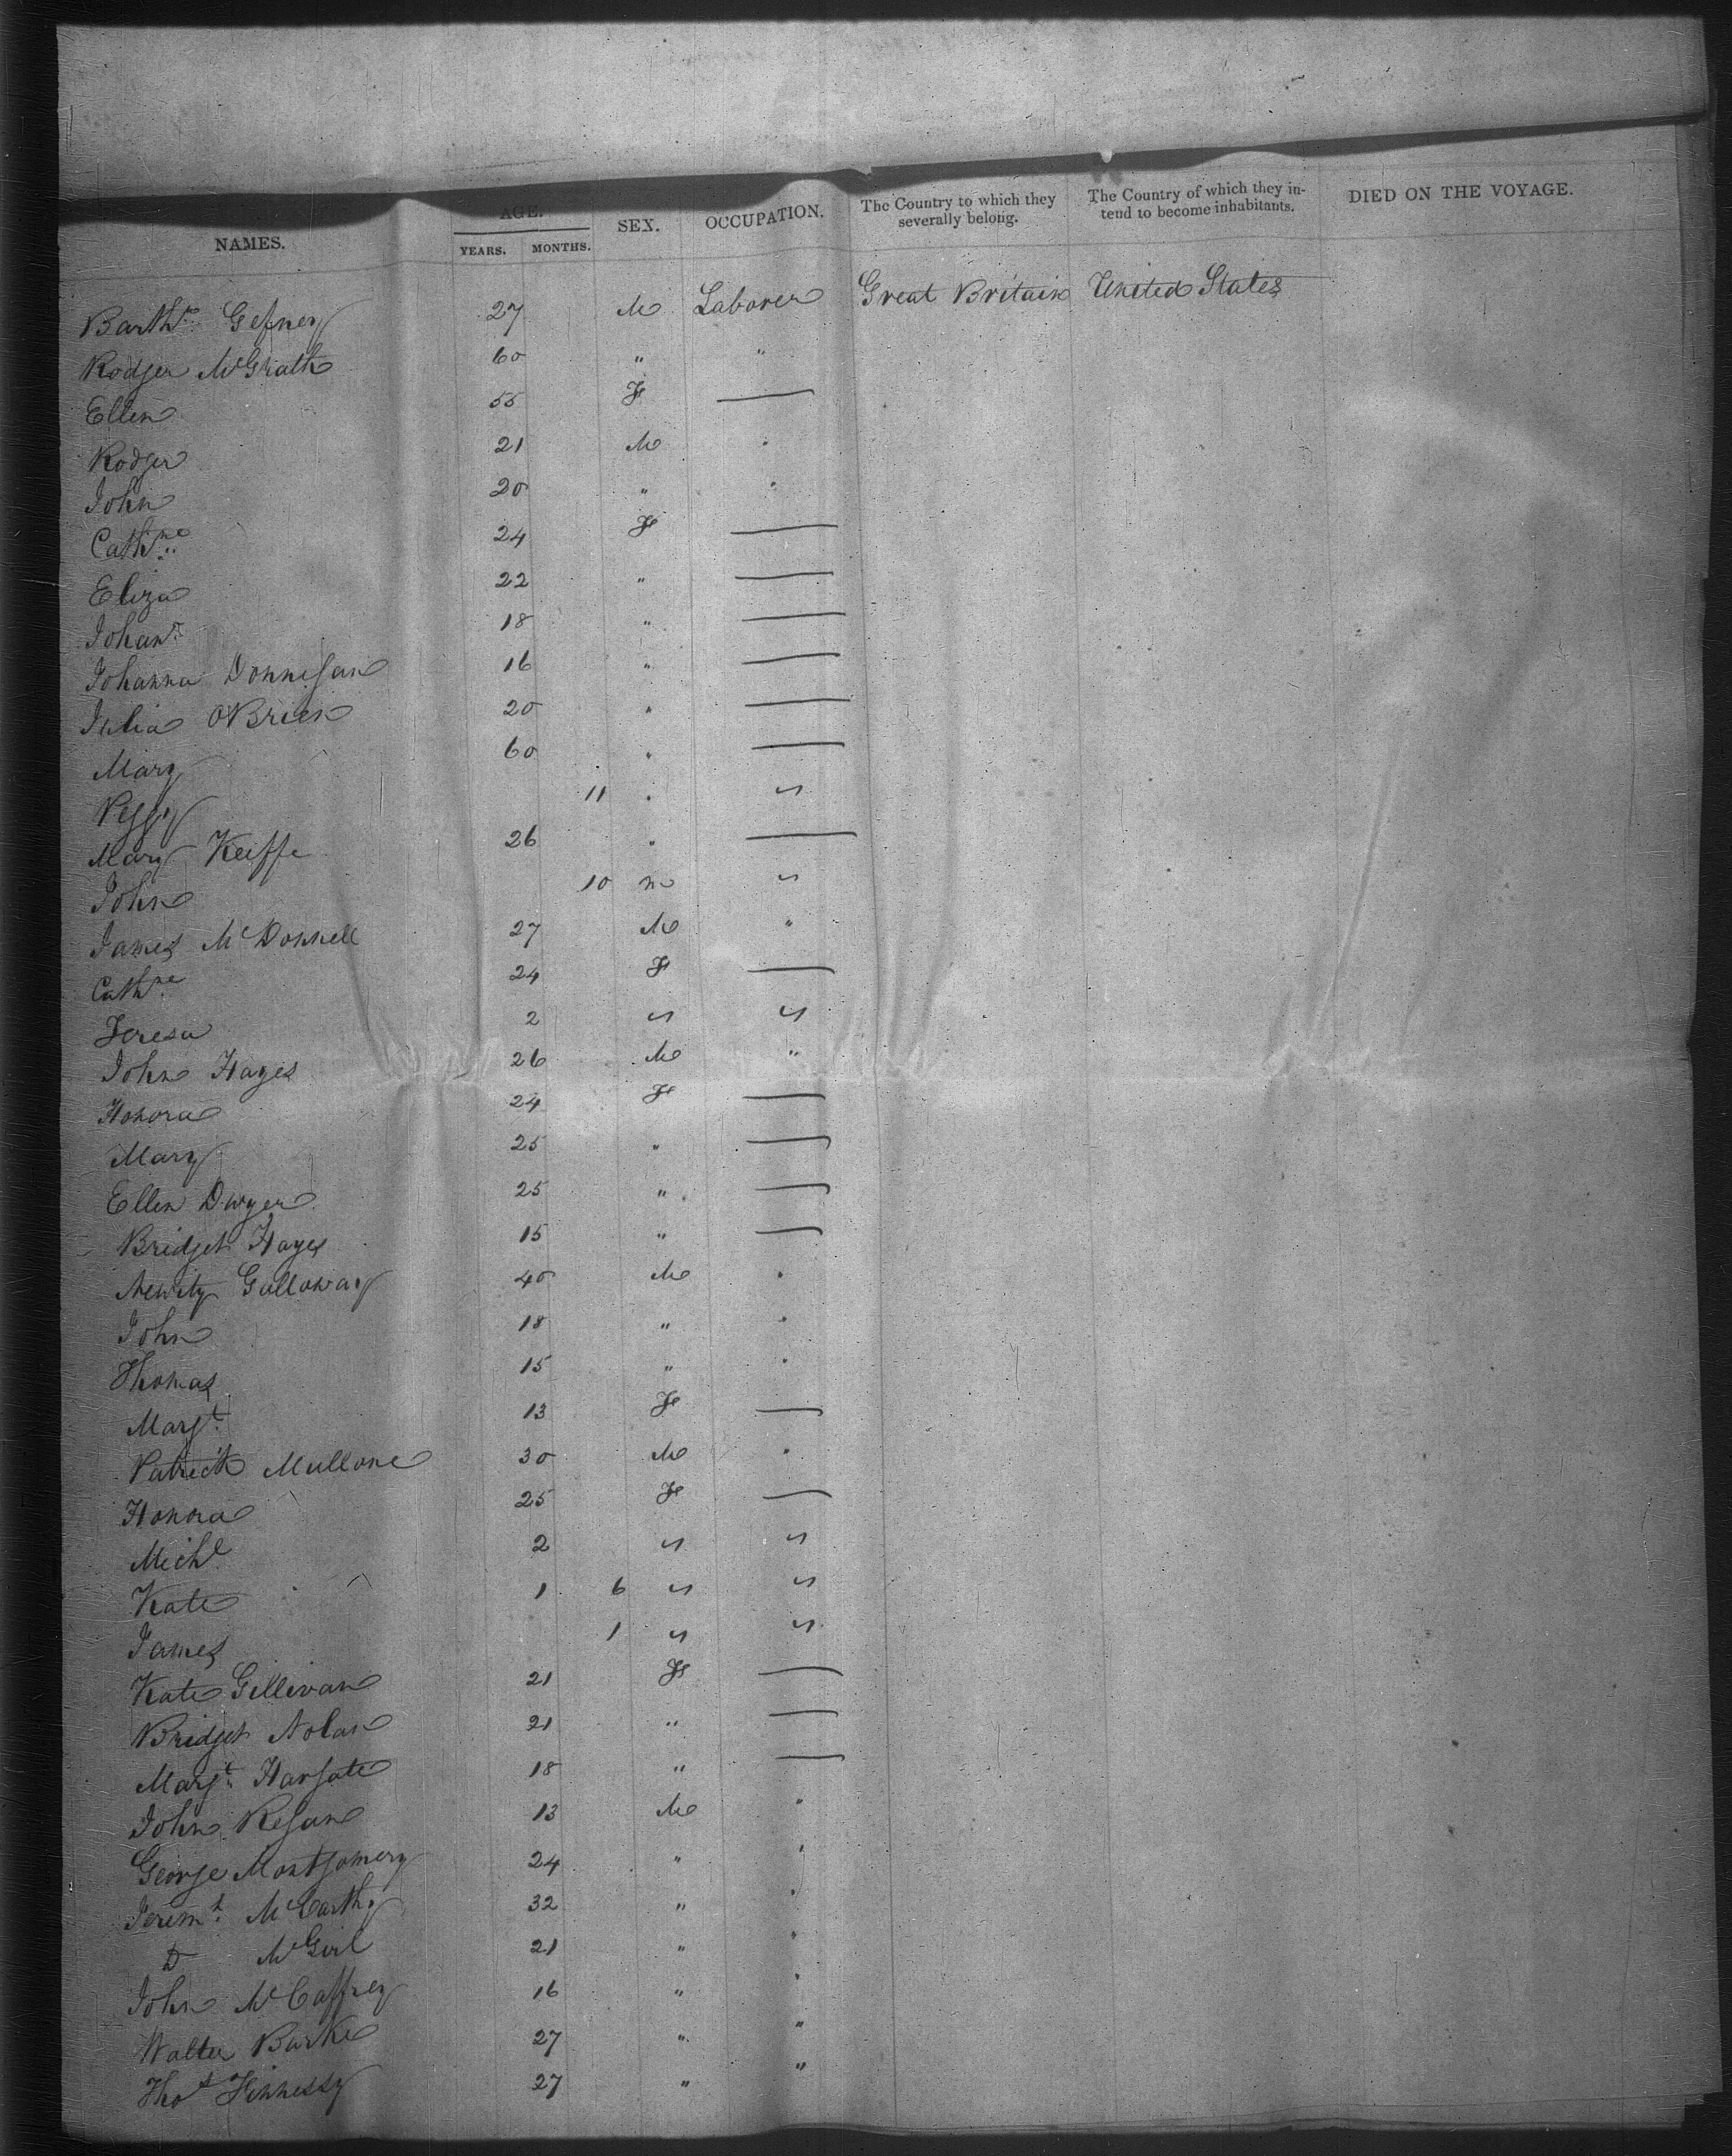 NAMES. AGE. SEX. OCCUPATION. The Country to which they severally belong. The Country of which they in- tend to become inhabitants. DIED ON THE VOYAGE.
YEARS. MONTHS.
Barthw. Gefney 27 M Laborer Great Britain United States
Rodger McGrath 60 " "
Ellen 55 F —
Rodger 21 M "
John 20 " "
Cathne 24 F —
Eliza 22 " —
Johan 18 " —
Johanna Donnegan 16 " —
Julia OBrien 20 " —
Mary 60 " —
Peggy 11 " "
Mary Keiffe 26 " —
John 10 m "
James McDonnell 27 M "
Cathne 24 F —
Teresa 2 " "
John Hayes 26 M "
Honora 24 F —
Mary 25 " —
Ellen Dwyer 25 " —
Bridget Hayes 15 " —
Galloway 40 M "
John 18 " "
Thomas 15 " "
Margt. 13 F —
Patrick Mullone 30 M "
Honora 25 F —
Michl 2 " "
Kate 1 6 " "
James 1 " "
Kate Gillivan 21 F —
Bridget Nolan 21 " —
Margt. Hargate 18 " —
John Regan 13 M "
George Montgomery 24 " "
Jeremh. McCarthy 32 " "
D McGirl 21 " "
John McCaffrey 16 " "
Walter Burke 27 " "
Thos Hennessy 27 " "